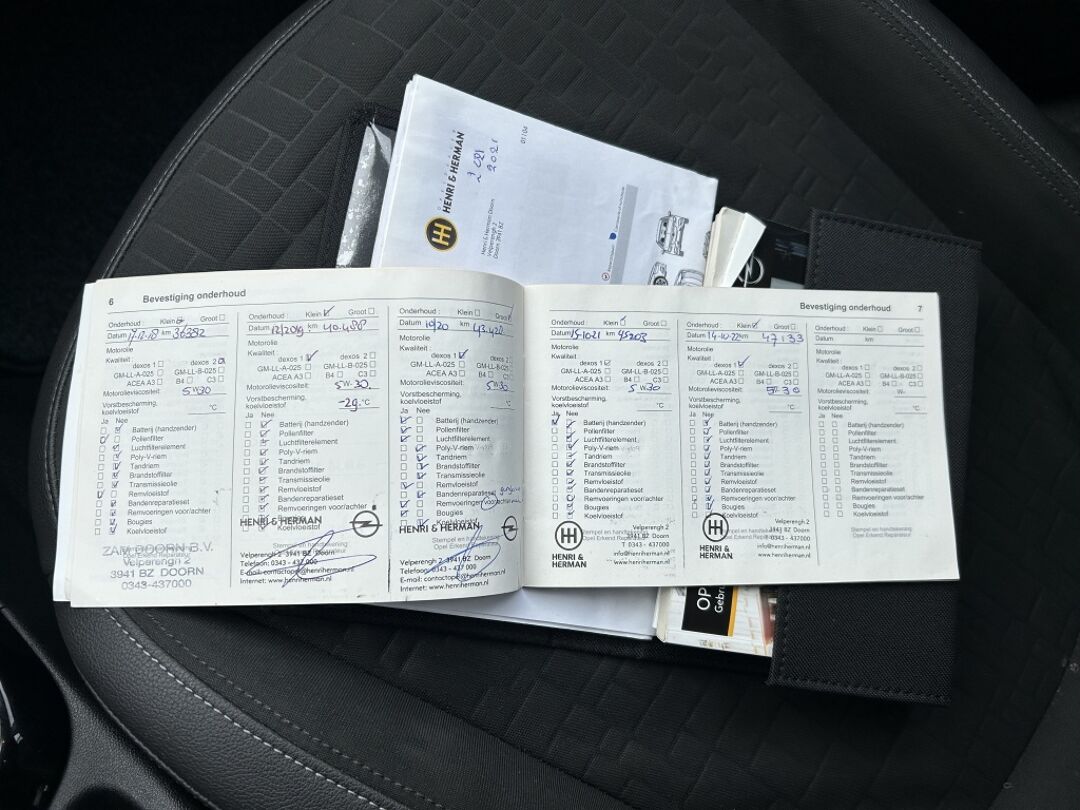 HENRI & HERMAN
2021
01104
Henri & Herman Doorn
Velperengh 2
Doorn 3941 BZ
6 Bevestiging onderhoud
Onderhoud : Klein Groot
Datum km 36392
Motorolie
Kwaliteit :
dexos 2
GM-LL-A-025 GM-LL-B-025
ACEA A3 B4 C3
Motorolieviscositeit: 5W30
Vorstbescherming,
koelvloeistof °C
Ja Nee
Batterij (handzender)
Pollenfilter
Luchtfilterelement
Poly-V-riem
Tandriem
Brandstoffilter
Transmissieolie
Remvloeistof
Bandenreparatieset
Remvoeringen voor/achter
Bougies
Koelvloeistof
ZAM DOORN B.V.
Velperengh 2
3941 BZ DOORN
0343-437000
Onderhoud : Klein Groot
Datum 12/2019 km 40.486
Motorolie
Kwaliteit :
dexos 1 dexos 2
GM-LL-A-025 GM-LL-B-025
ACEA A3 B4 C3
Motorolieviscositeit: 5W-30
Vorstbescherming,
koelvloeistof -29 °C
Ja Nee
Batterij (handzender)
Pollenfilter
Luchtfilterelement
Poly-V-riem
Tandriem
Brandstoffilter
Transmissieolie
Remvloeistof
Bandenreparatieset
Remvoeringen voor/achter
Bougies
Koelvloeistof
HENRI & HERMAN
Velperengh 2 3941 BZ Doorn
Telefoon: 0343 - 437 000
Internet: www.henriherman.nl
Onderhoud : Klein Groot
Datum 10/20 km 43.420
Motorolie
Kwaliteit :
dexos 1 dexos 2
GM-LL-A-025 GM-LL-B-025
ACEA A3 B4 C3
Motorolieviscositeit: 5W30
Vorstbescherming,
koelvloeistof °C
Ja Nee
Batterij (handzender)
Pollenfilter
Luchtfilterelement
Poly-V-riem
Tandriem
Brandstoffilter
Transmissieolie
Remvloeistof
Bandenreparatieset
Remvoeringen voor/achter
Bougies
Koelvloeistof
HENRI & HERMAN
Velperengh 2 3941 BZ Doorn
Telefoon: 0343 - 437 000
Internet: www.henriherman.nl
Bevestiging onderhoud 7
Onderhoud : Klein Groot
Datum km 45203
Motorolie
Kwaliteit :
dexos 1 dexos 2
GM-LL-A-025 GM-LL-B-025
ACEA A3 B4 C3
Motorolieviscositeit: 5W30
Vorstbescherming,
koelvloeistof °C
Ja Nee
Batterij (handzender)
Pollenfilter
Luchtfilterelement
Poly-V-riem
Tandriem
Brandstoffilter
Transmissieolie
Remvloeistof
Bandenreparatieset
Remvoeringen voor/achter
Bougies
Koelvloeistof
HENRI &
HERMAN
Velperengh 2
3941 BZ Doorn
T 0343 - 437000
info@henriherman.nl
www.henriherman.nl
Onderhoud : Klein Groot
Datum 14-10-22 km 47133
Motorolie
Kwaliteit :
dexos 1 dexos 2
GM-LL-A-025 GM-LL-B-025
ACEA A3 B4 C3
Motorolieviscositeit: 5W30
Vorstbescherming,
koelvloeistof °C
Ja Nee
Batterij (handzender)
Pollenfilter
Luchtfilterelement
Poly-V-riem
Tandriem
Brandstoffilter
Transmissieolie
Remvloeistof
Bandenreparatieset
Remvoeringen voor/achter
Bougies
Koelvloeistof
HENRI &
HERMAN
Velperengh 2
3941 BZ Doorn
T 0343 - 437000
info@henriherman.nl
www.henriherman.nl
Onderhoud : Klein Groot
Datum km
Motorolie
Kwaliteit :
dexos 1 dexos 2
GM-LL-A-025 GM-LL-B-025
ACEA A3 B4 C3
Motorolieviscositeit: W-
Vorstbescherming,
koelvloeistof °C
Ja Nee
Batterij (handzender)
Pollenfilter
Luchtfilterelement
Poly-V-riem
Tandriem
Brandstoffilter
Transmissieolie
Remvloeistof
Bandenreparatieset
Remvoeringen voor/achter
Bougies
Koelvloeistof
Stempel en handtekening
Opel Erkend Reparateur
OP
Gebr